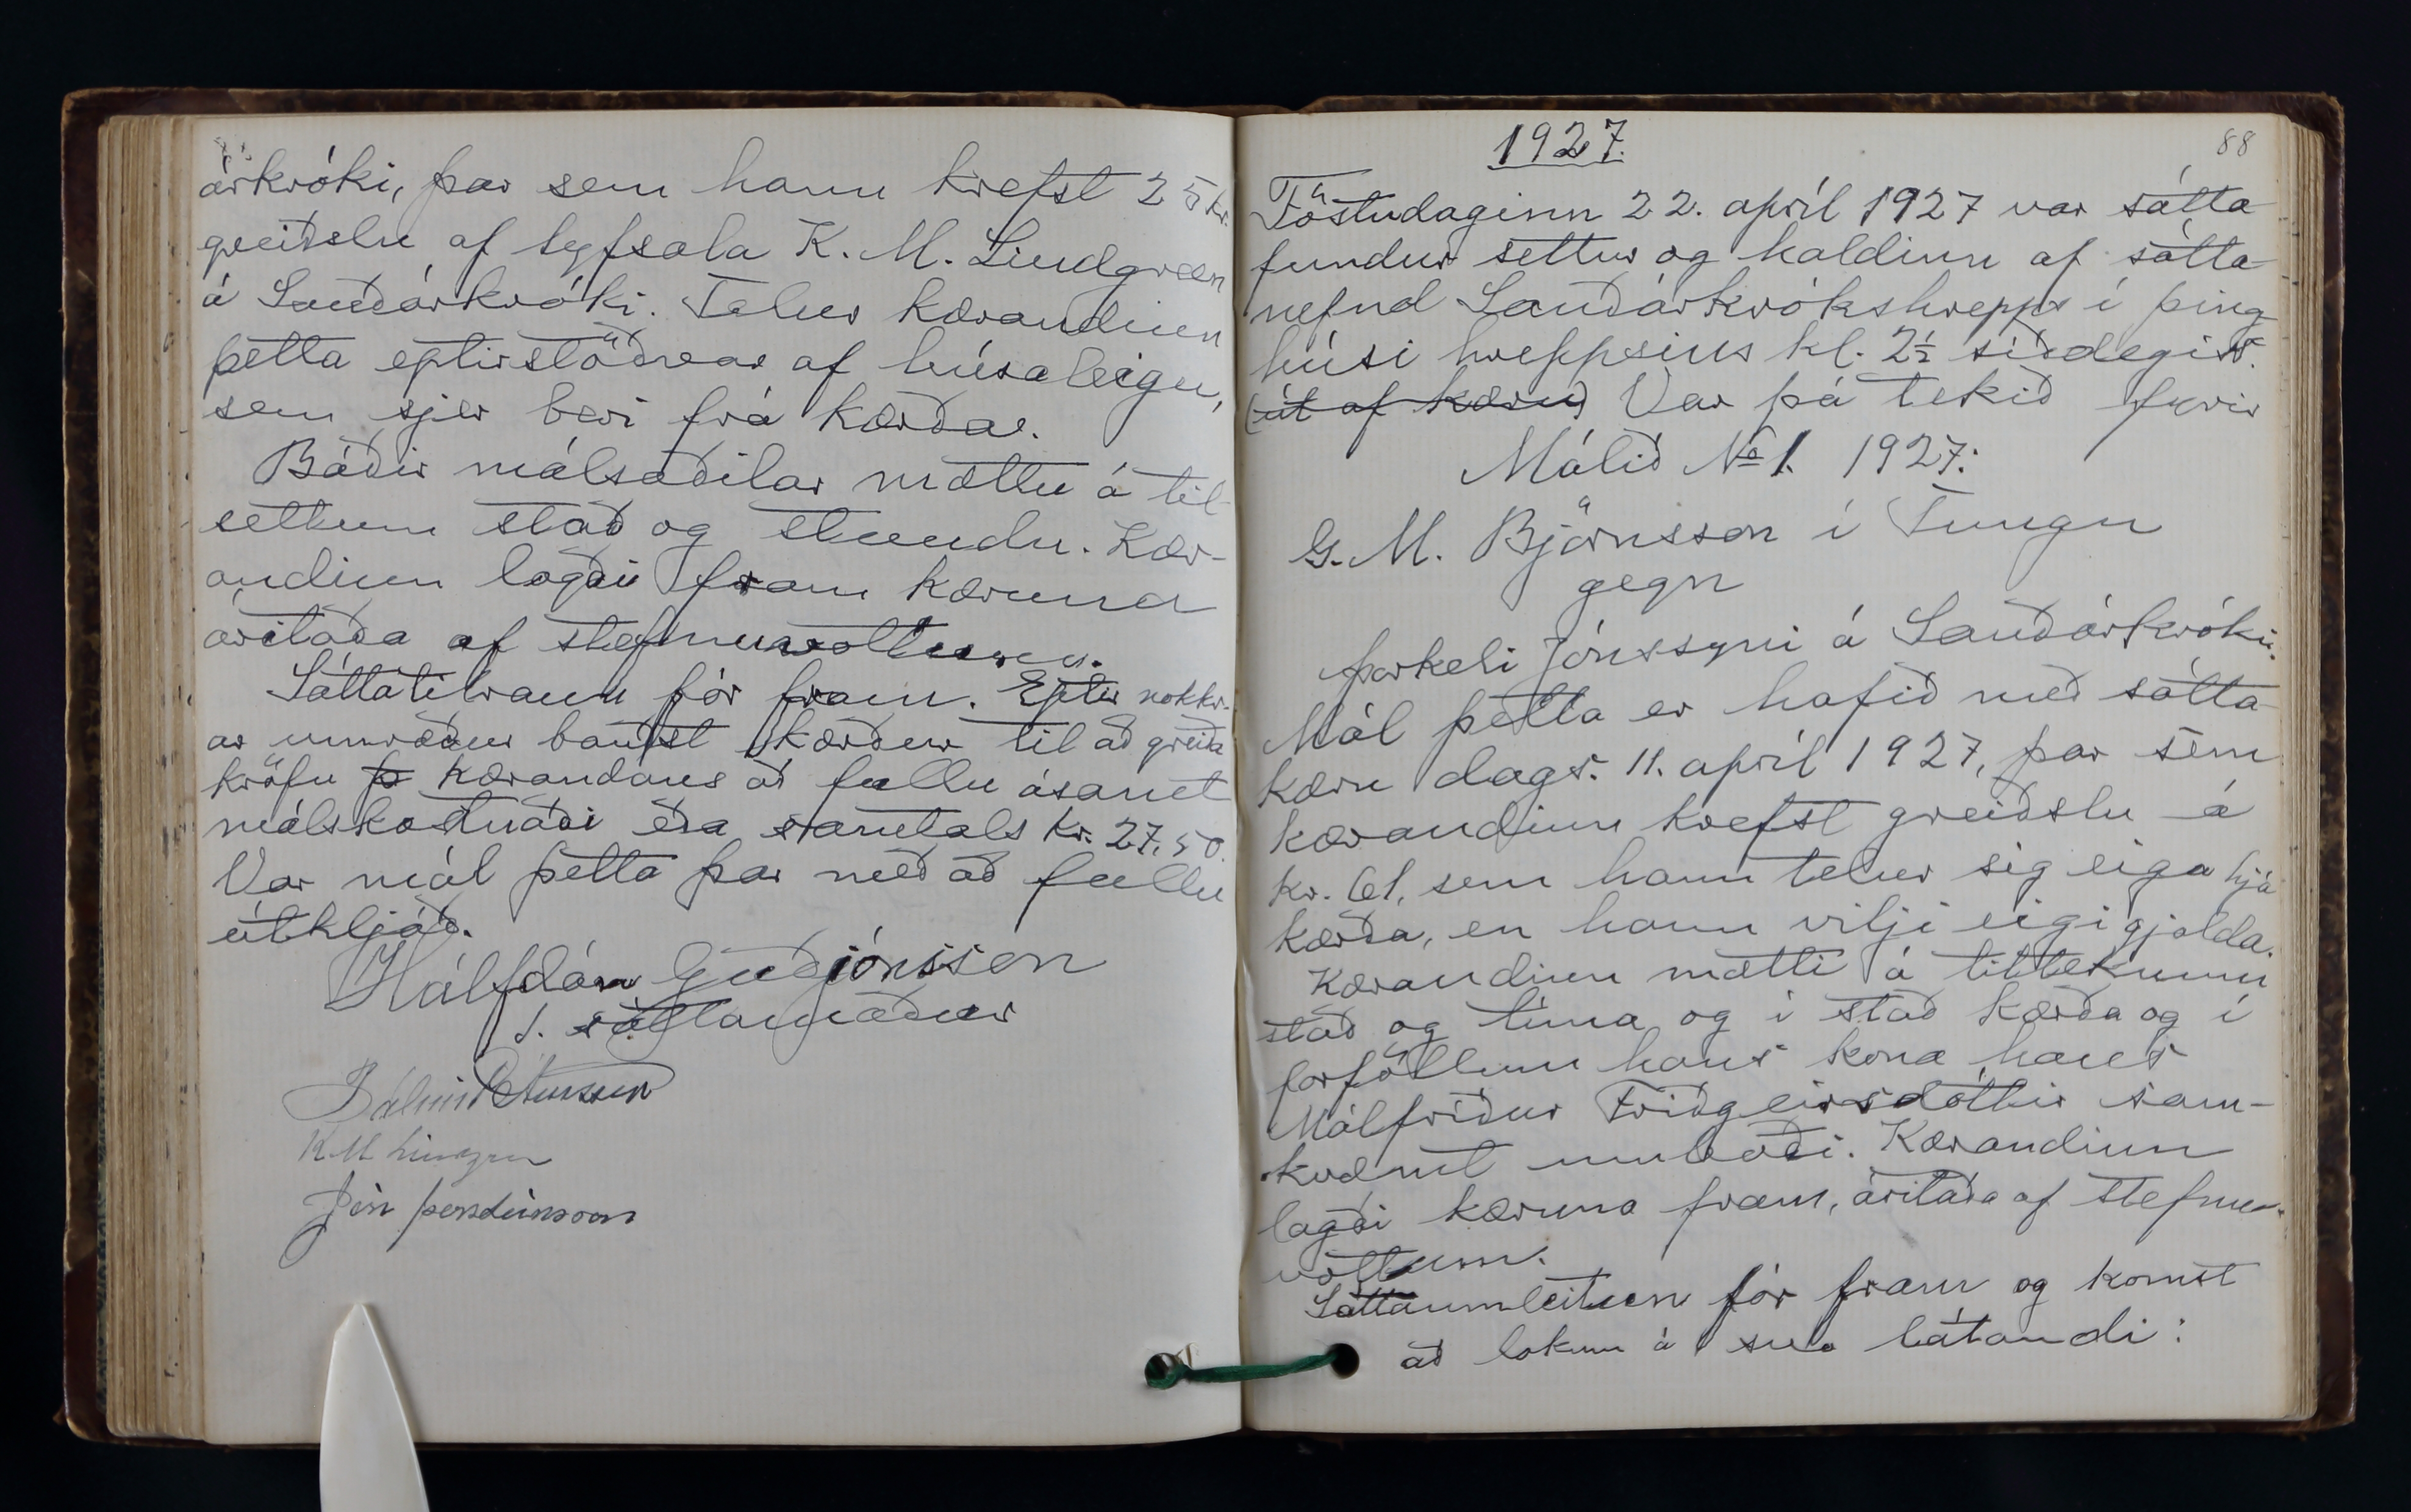 árkróki, þar sem hann krefst 25 kr.
greiðslu af lyfsala K. M. Lindgreen
á Sauðárkróki. Telur kærandinn
þetta eptirstöðvar af húsaleigu,
sem sjer beri frá kærða.
Báðir málsaðilar mættu á til-
settum stað og stundu. Kær-
andinn lagði fram kæruna
áritaða af stefnuvottunum.
Sáttatilraun fór fram. Eptir nokkr-
ar umræður bauðst kærður til að greiða
kröfu kærandans að fullu ásamt
málskostnaði eða samtals kr. 27.50.
Var mál þetta þar með að fullu
útkljáð.
Hálfdán Guðjónsson
1. sáttamaður
Pálmi Pétursson
K M Lindgren
Jón Þorsteinsson
88
1927.
Föstudaginn 22. apríl 1927 var sátta
fundur settur og haldinn af sátta
nefnd Sauðárkrókshrepps í þing
húsi hreppsins kl. 2½ síðdegis.
(út af kæru) Var þá tekið fyrir
Málið № 1. 1927:
G. M. Björnsson í Tungu
gegn
Þorkeli Jónssyni á Sauðárkróki.
Mál þetta er hafið með sátta
kæru dags. 11. apríl 1927, þar sem
kærandinn krefst greiðslu á
kr. 61, sem hann telur sig eiga hjá
kærða, en hann vilji eigi gjalda.
Kærandinn mætti á tilteknum
stað og tíma og í stað kærða og í
forföllum hans kona hans
Málfríður Friðgeirsdóttir sam-
kvæmt umboði. Kærandinn
lagði kæruna fram, áritaða af stefnu-
vottum.
Sáttaumleitun fór fram og komst
að lokum á svo látandi: